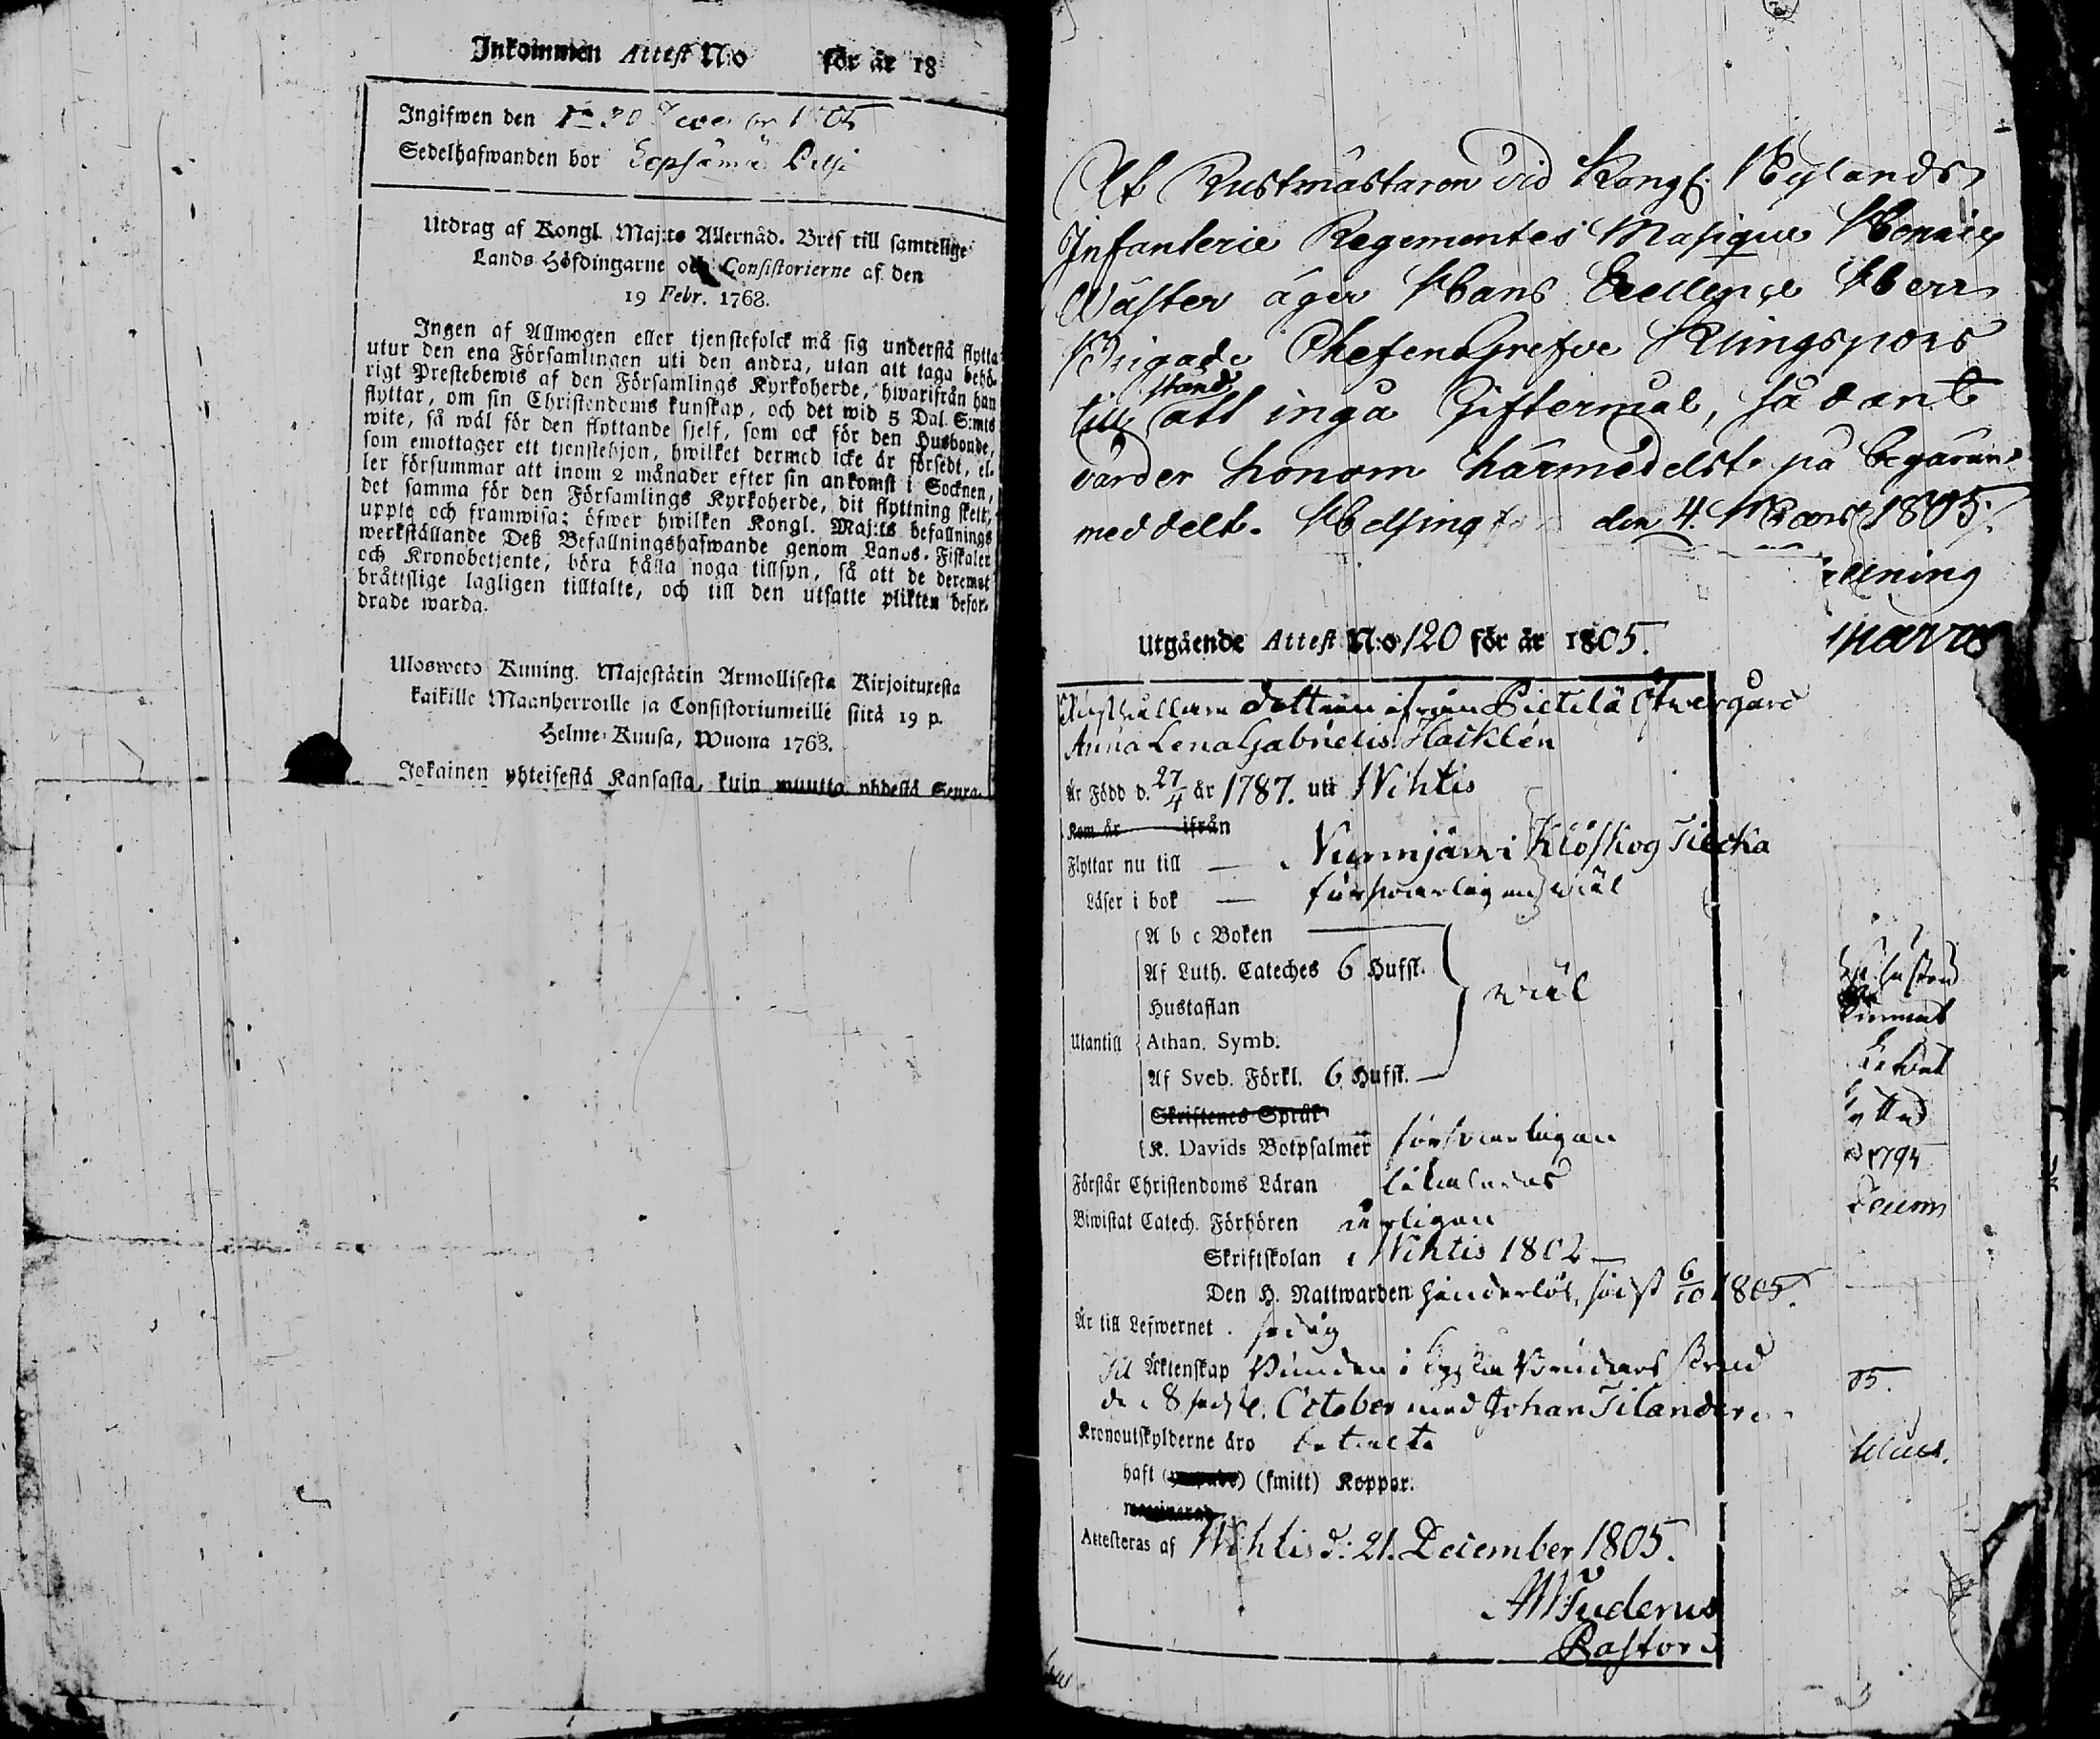 Inkommen Attest N:o för år 18
Ingifwen den
Sedelhafwanden bor
Utdrag af Kongl. Maj:ts Allernåd. Bref till samtelige
Lands Höfdingarne och Consistorierne af den
19 Febr. 1763.
Ingen af Allmogen eller tjenstefolck må sig understå flytta
utur den ena Församlingen uti den andra, utan att taga behö-
rigt Prestebewis af den Församlings Kyrkoherde, hwarifrån han
flyttar, om sin Christendoms kunskap, och det wid 5 Dal. S:mts
wite, så wäl för den flyttande sjelf, som ock för den Husbonde,
som emottager ett tjenstehjon, hwilket dermed icke är försedt, el-
ler försummar att inom 2 månader efter sin ankomst i Socknen,
det samma för den Församlings Kyrkoherde, dit flyttning skett,
uppte och framwisa; öfwer hwilken Kongl. Maj:ts befallnings
werkställande Deß Befallningshafwande genom Lands-Fiskaler
och Kronobetjente, böra hålla noga tillsyn, så att de deremot
bråttslige lagligen tilltalte, och till den utsatte plikten befor-
drade warda.
Ulosweto Kuning. Majestätin Armollisesta Kirjoituxesta
kaikille Maanherroille ja Consistoriumeille siitä 19 p.
Helme-Kuusa, Wuonna 1763.
Jokainen yhteisestä Kansasta, kuin muutta yhdestä Seura-
Af Rustmästaren vid Kongl. Nylands
Infanterie Regementes Henric
Wäster äger Hans Exellence Herr
Brigade Chefen Grefve Klingspors
till stånd att ingå Giftermål, sådant
varder honom härmedelst på begäran
meddelt. Helsing den 4. Mars 1805.
Utgående Attest N:o 120 för år 1805.
Rusthållare dottren ifrån Pietilä Öfwergård
Anna Lena Gabrielis Hacklén
Är Född d. 27/4 år 1787. uti Wihtis
Kom år ifrån
Flyttar nu till — Nurmjärvi Klöskog
Läser i bok — försvarligen wäl
A b c Boken
Af Luth. Cateches 6 Hufst.
Hustaflan wäl
Utantill Athan. Symb.
Af Sveb. Förkl. 6 Hufst.
Skriftenes Språk
K. Davids Botpsalmer försvarligen
Förstår Christendoms Läran likaledes
Biwistat Catech. Förhören årligen
Skriftskolan i Wihtis 1802
Den H. Nattwarden sidst 6/10 1805.
Är till Lefwernet. sedig
Til Äktenskap
October med Johan Tilander
Kronoutskylderne äro betalte
haft (smitt) Koppor.
Attesteras af Wihtis d: 21. December 1805.
Pastor
1794